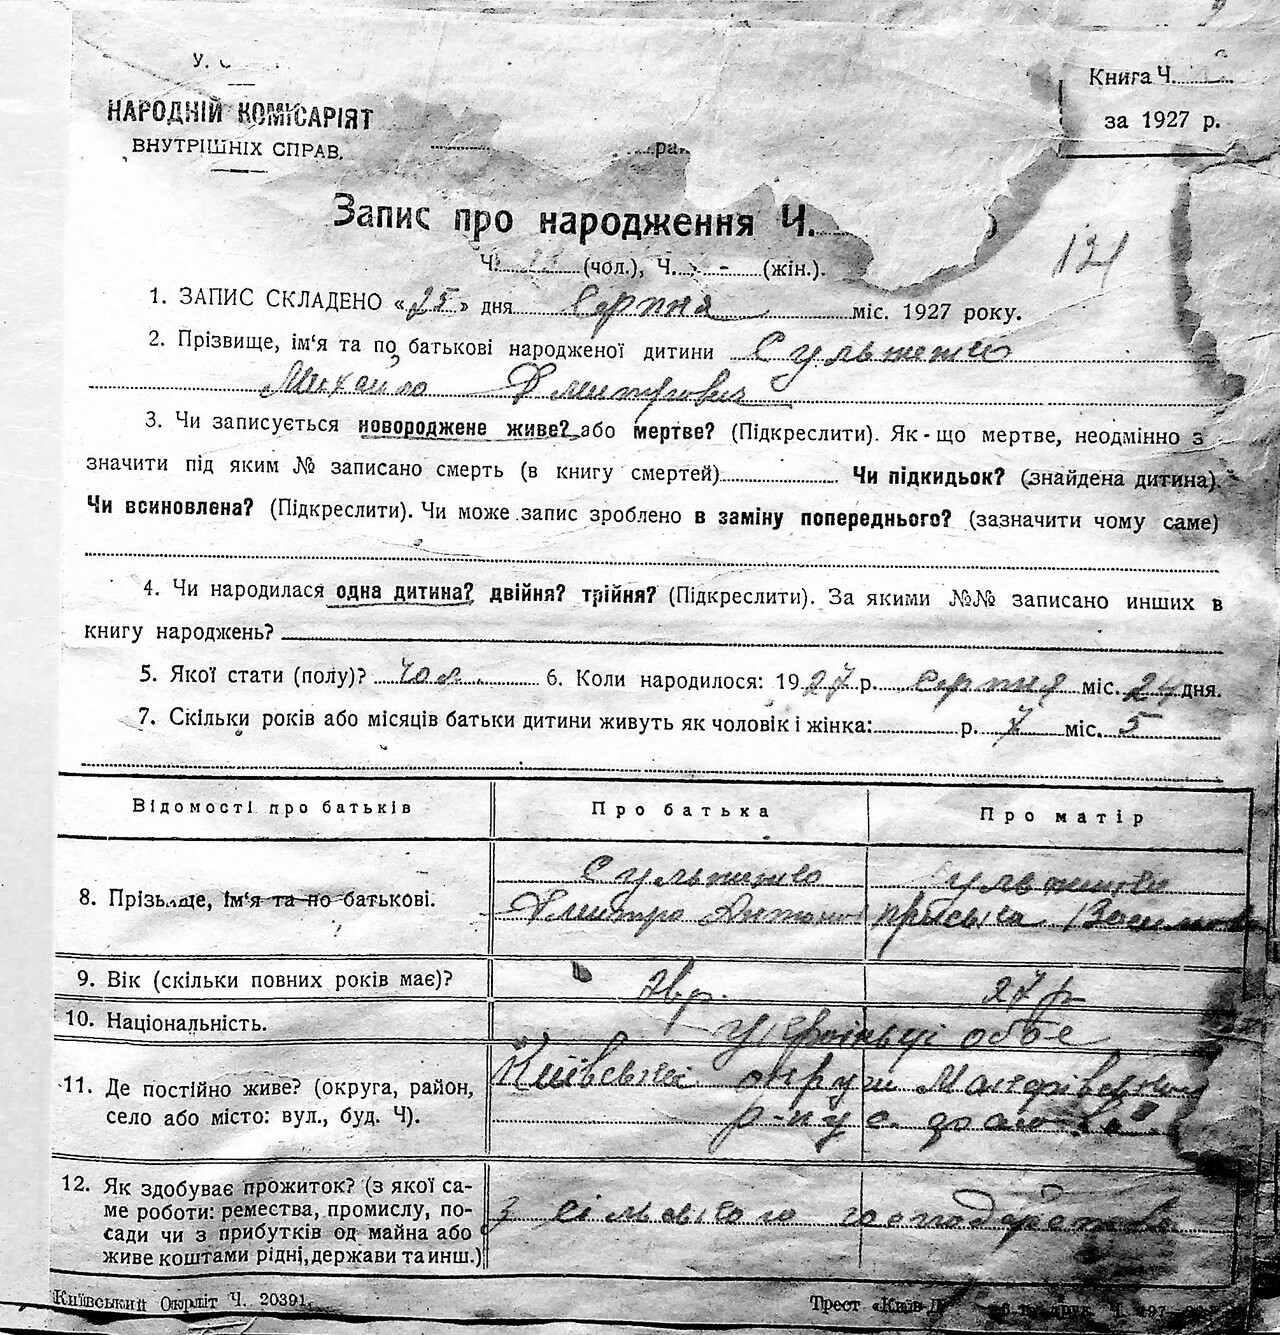 У.
Книга Ч.
НАРОДНІЙ КОМІСАРІЯТ
за 1927 р.
ВНУТРІШНІХ СПРАВ.
Запис про народження Ч.
Ч. (чол.), Ч. - (жін.).
121
1. ЗАПИС СКЛАДЕНО «25» дня Серпня міс. 1927 року.
2. Прізвище, ім‘я та по батькові народженої дитини
Михайло Дмитрович
3. Чи записується новороджене живе? або мертве? (Підкреслити). Як-що мертве, неодмінно з
значити під яким № записано смерть (в книгу смертей) Чи підкидьок? (знайдена дитина).
Чи всиновлена? (Підкреслити). Чи може запис зроблено в заміну попереднього? (зазначити чому саме)
4. Чи народилася одна дитина? двійня? трійня? (Підкреслити). За якими №№ записано инших в
книгу народжень?
5. Якої стати (полу)? чол. 6. Коли народилося: 1927 р. серпня міс. 24 дня.
7. Скільки років або місяців батьки дитини живуть як чоловік і жінка: р. 7 міс. 5
Відомості про батьків Про батька Про матір
8. Прізвище, ім‘я та по батькові.
Дмитро
9. Вік (скільки повних років має)? 27 р
10. Національність. Українці обоє
11. Де постійно живе? (округа, район, Київської округи
село або місто: вул., буд. Ч). р-ну с.
12. Як здобуває прожиток? (з якої са-
ме роботи: ремества, промислу, по- з сільського господарства
сади чи з прибутків од майна або
живе коштами рідні, держави та инш.)
Київський Окрліт Ч. 20391.
Трест «Київ-Д